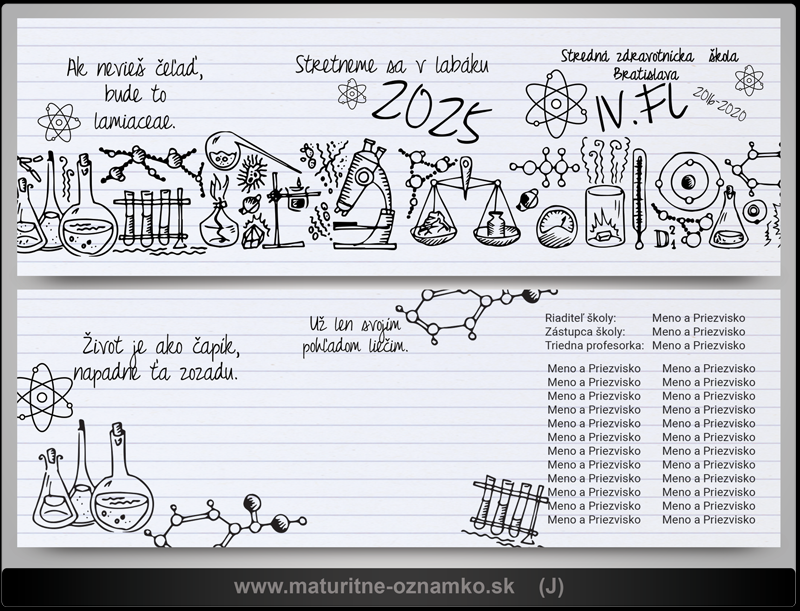 Ak nevieš čeľaď,
bude to
lamiaceae.
Stretneme sa v labáku
2025
Stredná zdravotnícka škola
Bratislava
IV.FL
2016-2020
D²₁
Život je ako čapík,
napadne ťa zozadu.
Už len svojím
pohľadom liečim.
Riaditeľ školy: Meno a Priezvisko
Zástupca školy: Meno a Priezvisko
Triedna profesorka: Meno a Priezvisko
Meno a Priezvisko Meno a Priezvisko
Meno a Priezvisko Meno a Priezvisko
Meno a Priezvisko Meno a Priezvisko
Meno a Priezvisko Meno a Priezvisko
Meno a Priezvisko Meno a Priezvisko
Meno a Priezvisko Meno a Priezvisko
Meno a Priezvisko Meno a Priezvisko
Meno a Priezvisko Meno a Priezvisko
Meno a Priezvisko Meno a Priezvisko
Meno a Priezvisko Meno a Priezvisko
Meno a Priezvisko Meno a Priezvisko
Meno a Priezvisko Meno a Priezvisko
www.maturitne-oznamko.sk (J)